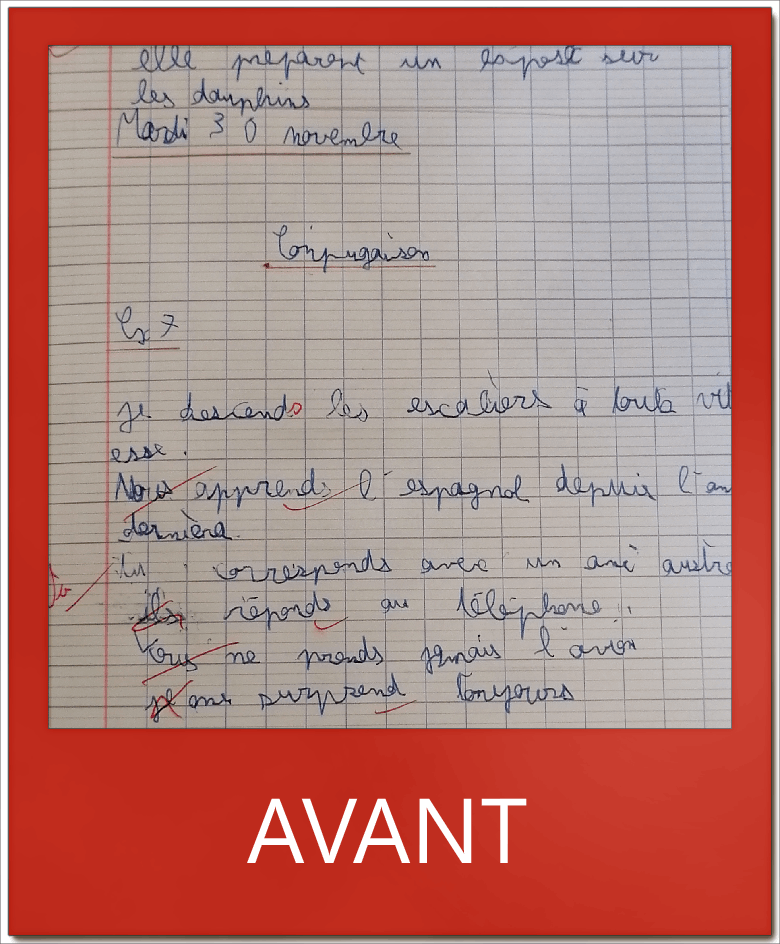 elle preparent un exposé sur
les dauphins
Mardi 30 novembre
Conjugaison
Ex 7
je descends les escaliers à toute vit
esse.
Nous apprends l'espagnol depuis l'an
dernière.
tu corresponds avec un ami autri
réponds au téléphone.
Vous ne prends jamais l'avion
je me surprend toujours
AVANT